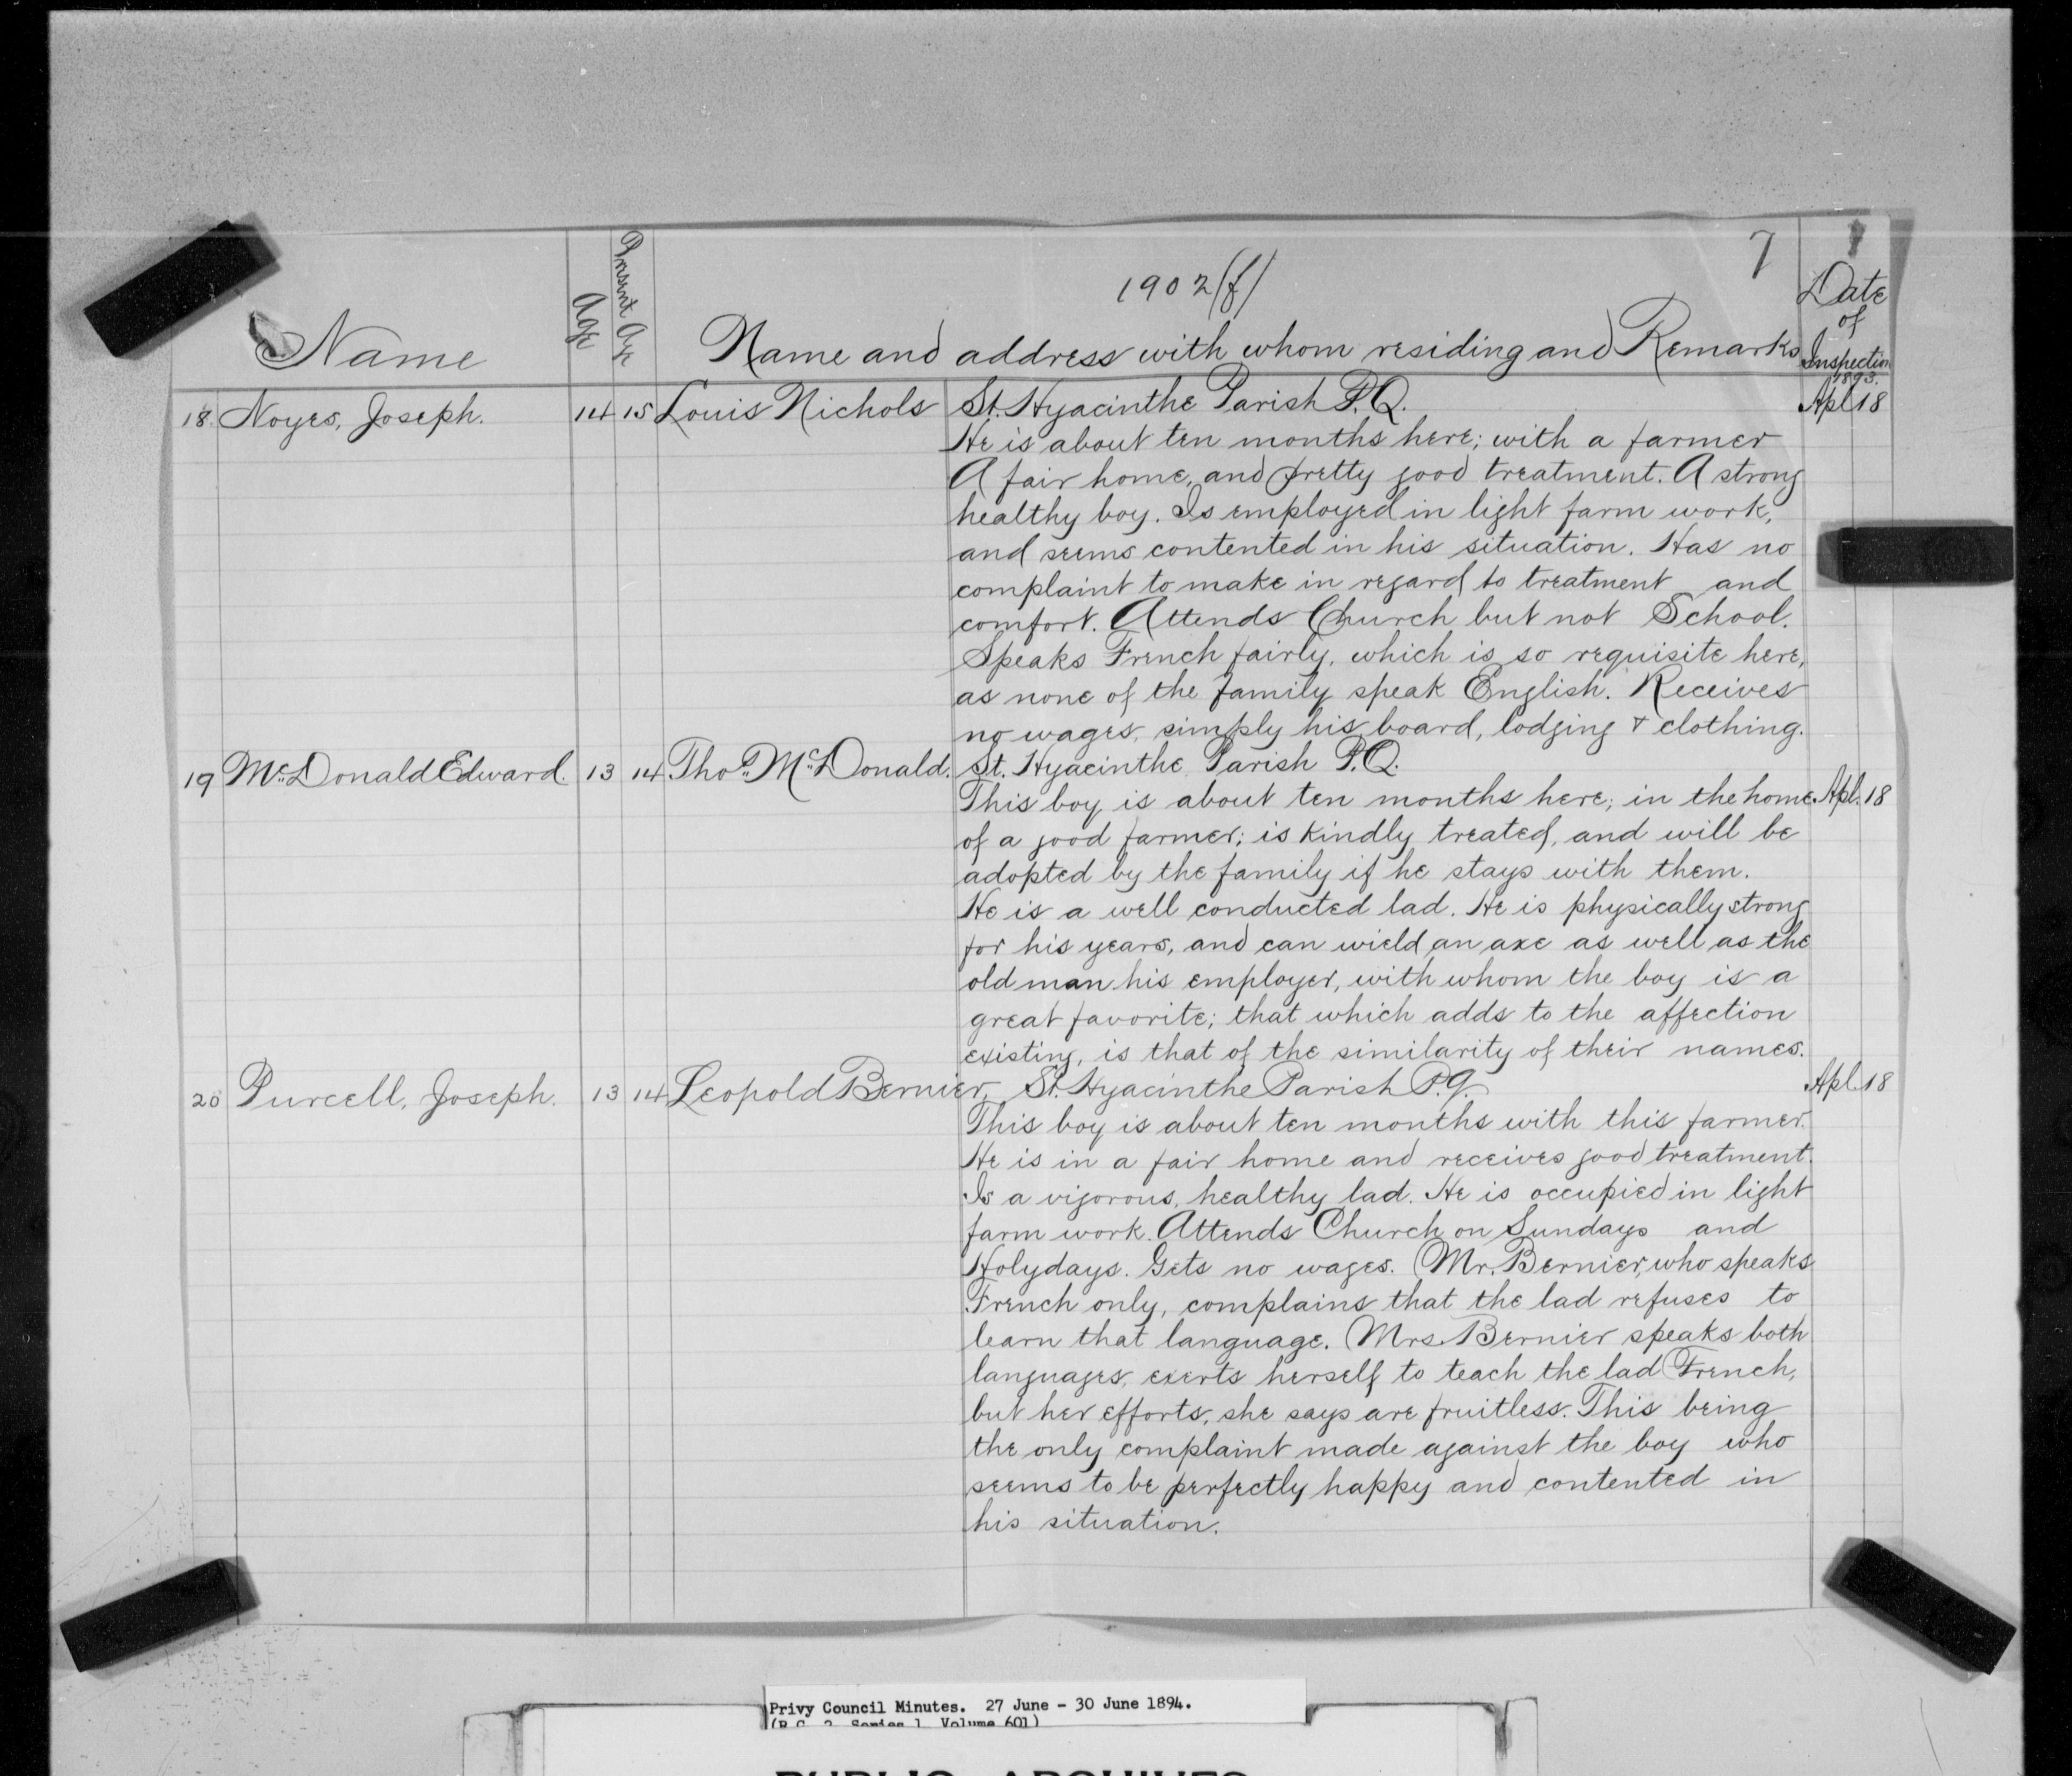 1902 (f)
7
Name
Age
Present Age
Name and address with whom residing and Remarks
Date
of
Inspection
1893.
18. Noyes, Joseph. 14 15 Louis Nichols St. Hyacinthe Parish P.Q. Apl 18
He is about ten months here; with a farmer
A fair home, and pretty good treatment. A strong
healthy boy. Is employed in light farm work,
and seems contented in his situation. Has no
complaint to make in regard to treatment and
comfort. Attends Church but not School.
Speaks French fairly, which is so requisite here,
as none of the family speak English. Receives
no wages, simply his board, lodging & clothing.
19 McDonald Edward. 13 14 Thos. McDonald. St. Hyacinthe Parish P.Q.
This boy is about ten months here; in the home Apl. 18
of a good farmer; is kindly treated, and will be
adopted by the family if he stays with them.
He is a well conducted lad. He is physically strong
for his years, and can wield an axe as well as the
old man his employer, with whom the boy is a
great favorite; that which adds to the affection
existing, is that of the similarity of their names.
20 Purcell, Joseph. 13 14 Leopold Bernier, St. Hyacinthe Parish P.Q. Apl. 18
This boy is about ten months with this farmer.
He is in a fair home and receives good treatment.
Is a vigorous, healthy lad. He is occupied in light
farm work. Attends Church on Sundays and
Holydays. Gets no wages. Mr. Bernier, who speaks
French only, complains that the lad refuses to
learn that language. Mrs. Bernier speaks both
languages, exerts herself to teach the lad French,
but her efforts, she says are fruitless. This being
the only complaint made against the boy who
seems to be perfectly happy and contented in
his situation.
Privy Council Minutes. 27 June - 30 June 1894.
(R.G. 2, Series 1, Volume 601)
PUBLIC ARCHIVES